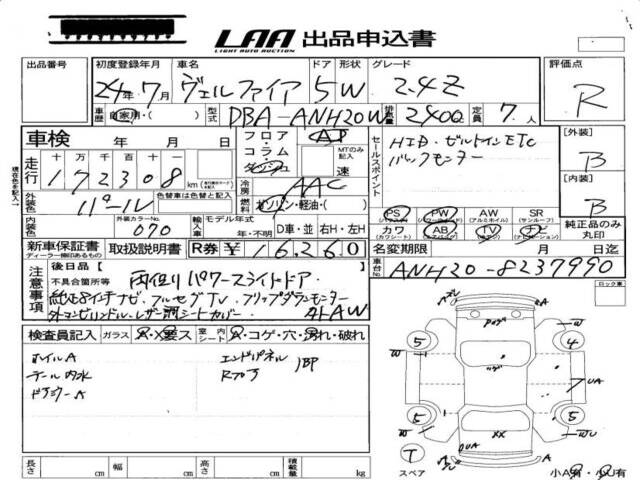 LAA 出品申込書
LIGHT AUTO AUCTION
出品番号 初度登録年月 車名 ドア 形状 グレード 評価点
24年 7月 ヴェルファイア 5W 2.4Z R
車歴 自家用・( ) 型式 DBA-ANH20W 排気量 2400 定員 7人
車検 年 月 日 フロア・コラム・インパネ AT MTのみ記入 速 セールスポイント HID・ビルトインETC [外装]
走行 十万 万 千 百 十 一 バックモニター B
172308 km 冷房 AAC [内装]
外装色 パール 色替車は色替と記入 ガソリン・軽油・( ) B
内装色 外装カラーNO. 070 輸入車 モデル年式 年・不明 D車・並 右H・左H
PS PW AW SR
カワ AB TV ナビ 純正品のみ丸印
新車保証書 取扱説明書 R券 ¥ 16260 名変期限 月 日迄
車台No. ANH20-8237990
ロック車
注意事項 後日品 不具合箇所等 両側パワースライドドア
純正8インチナビ・フルセグTV・フリップダウンモニター
シートカバー 社外AW
検査員記入 ガラス A・X・要ス 室内シート A・コゲ・穴・汚れ・破れ
ホイルA エンドパネル
テール内水
ドアミラーA
W W
5 4
W W
7 UA
5 5
WU W
XX
T UA
スペア A 小A有・小U有
長さ cm 幅 cm 高さ cm 積載量 kg
現在色を記入